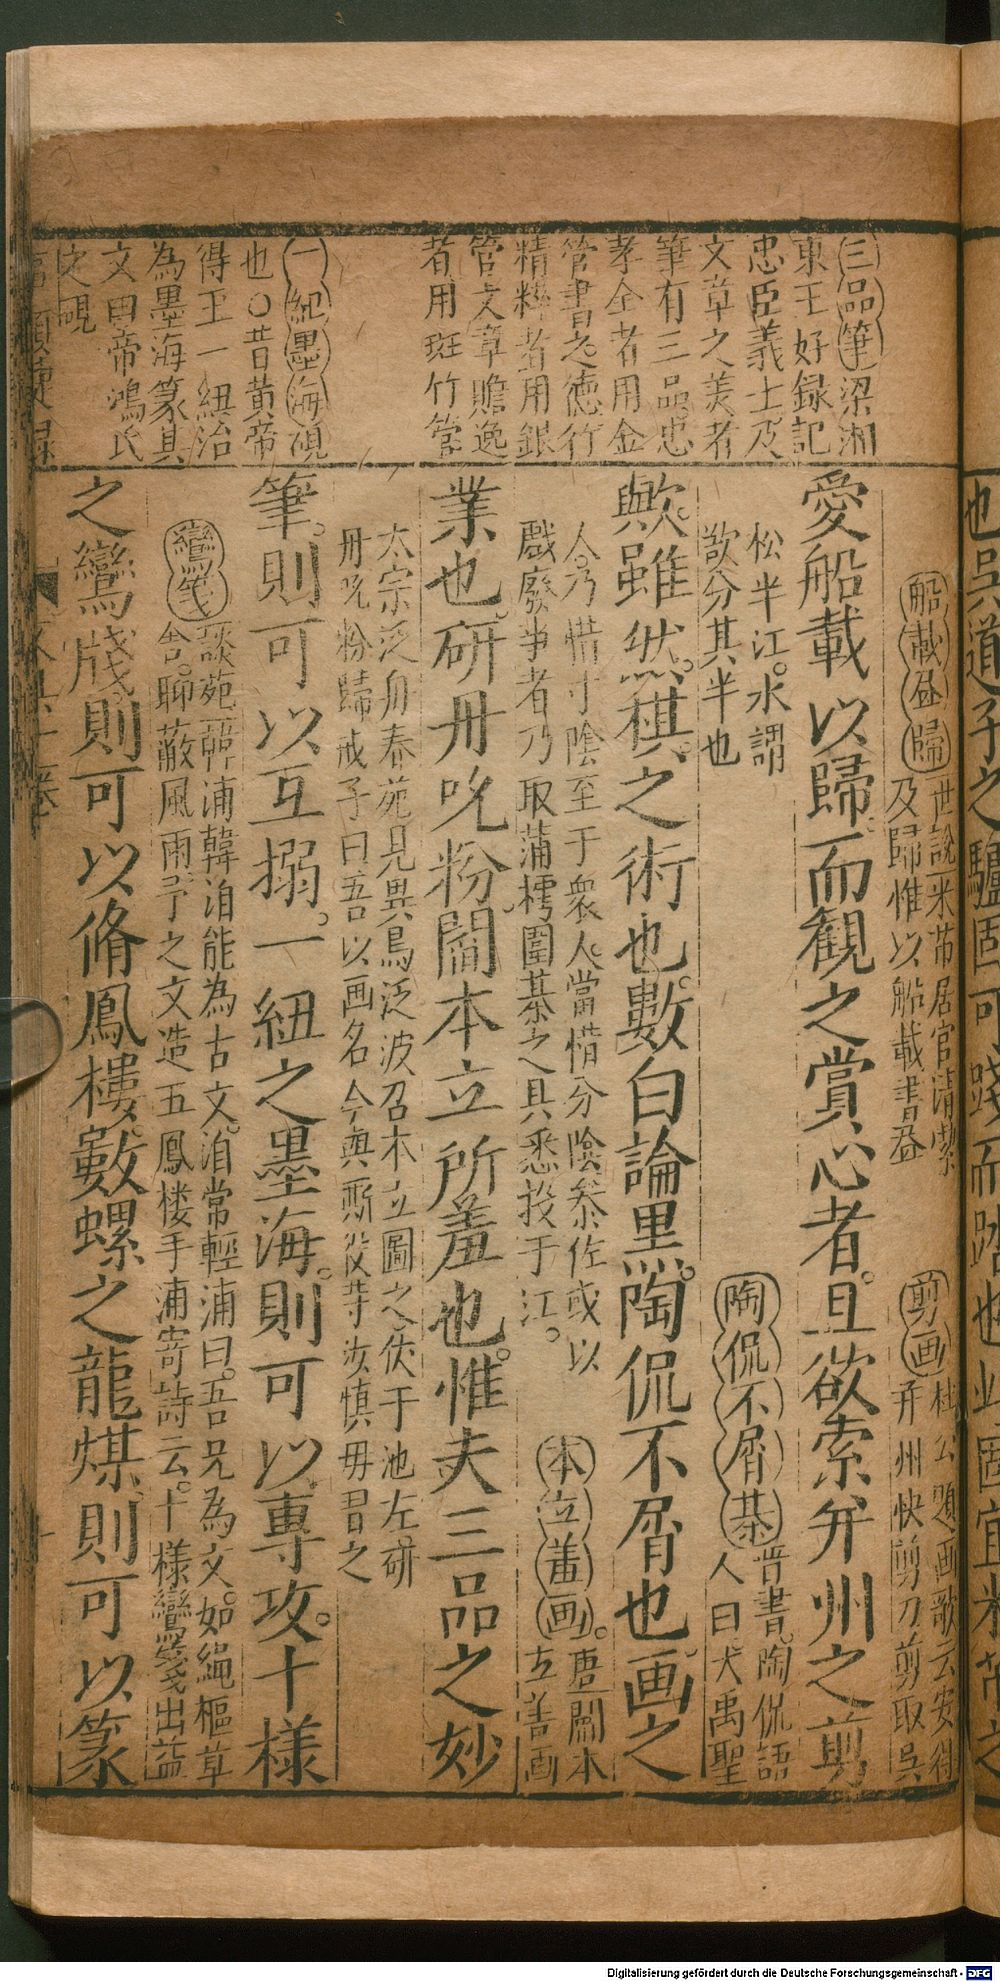 三品筆梁湘
東王好録記
忠臣義士及
文章之美者
筆有三品忠
孝全者用金
管書之徳行
精粹者用銀
管文章贍逸
者用斑竹管
一紐墨海硯
也〇昔黄帝
得玉一紐治
為墨海篆其
文曰帝鴻氏
之硯
也吳道子之驢固可踐而踏也此固宜米芾之
船載昼歸世說米芾居官清潔
及歸惟以船載書昼
剪画杜公題画歌云安得
并州快剪刀剪取吳
愛船載以歸而観之賞心者。且欲索并州之剪
松半江。水謂
欲分其半也
陶侃不屑棊晋書。陶侃語
人曰。大禹聖
歟。雖然。棋之術也。數白論黒。陶侃不屑也。画之
人。乃惜寸陰至于衆人。當惜分陰叅佐或以
戲廢事者乃取蒲樗圍棊之具悉投于江。
本立畫画。唐閻本
立善画
業也。研丹吮粉。閻本立所羞也。惟夫三品之妙
太宗泛舟春苑見異鳥泛波召本立圖之使于池左研
丹吮粉歸戒子曰吾以画名今與厮役等汝慎毋習之
筆。則可以互搦。一紐之墨海。則可以專攻。十様
鸞笺談苑韓浦韓洎能為古文。洎常輕浦曰。吾兄為文。如繩樞草
舎。聊蔽風雨予之文造五鳳楼手浦寄詩云。十様鸞箋出益
之鸞牋。則可以脩鳳樓。數螺之龍煤。則可以篆